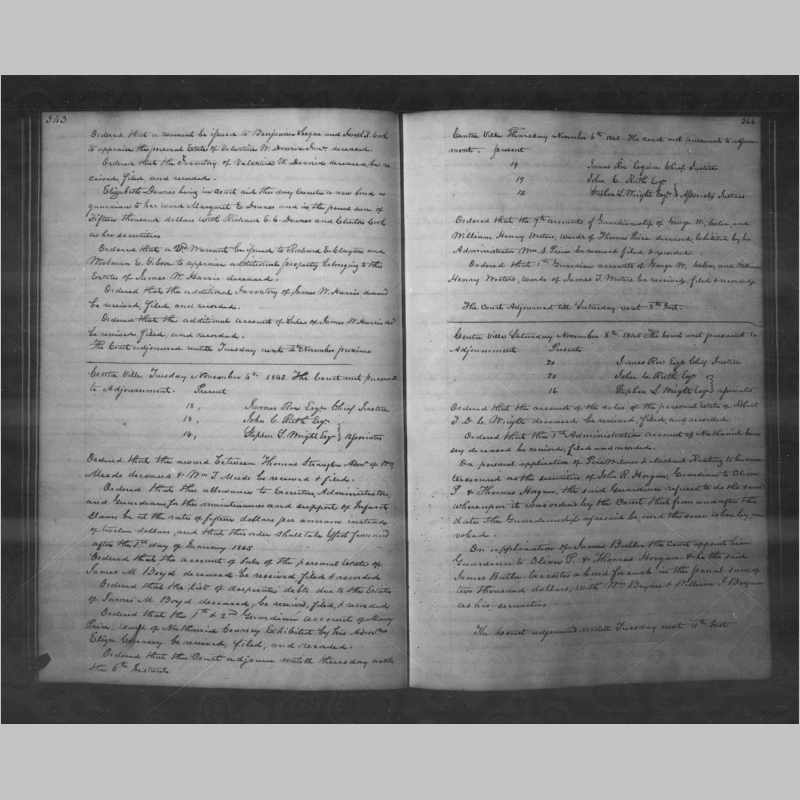 343
Ordered that a warrant be issued to Benjamin and Cook
to appraise the personal Estate of Valentine W. Downs deceased
Ordered that the Inventory of Valentine W. Downs deceased, be re
ceived, filed and recorded.
Elizabeth Downes being in Court did this day Execute a new bond as
guardian to her ward Margaret E Downes and in the penal sum of
Fifteen thousand dollars with Richard C. C. Downes and Clinton Cook
as her securities
Ordered that a Warrant be issued to Richard E. Clayton and
to appraise additional property belonging to the
Estate of James W. Harris deceased.
Ordered that the additional Inventory of James W. Harris deceasd
be received, filed and recorded.
Ordered that the additional account of Sales of James W Harris decd
be received filed, and recorded.
The Court adjourned until Tuesday next 4th November proximo
Centre Ville Tuesday November 4th 1845. The Court met pursuant
to Adjournment. Present
18, James Roe Esqr Chief Justice
18, John C. Ruth Esqr
14, Stephen L. Wright Esqr } Associates
Ordered that the award between Thomas Admr of Wm
Meeds deceased & Wm T Meeds be received & filed.
Ordered that the allowance to Executors, Administrators,
and Guardians for the maintenance and support of Infant
Slaves be at the rate of fifteen dollars per annum instead
of twelve dollars, and that this order shall take effect from and
after the 1st day of January 1845
Ordered that the account of Sales of the personal Estate of
James M. Boyd deceased be received filed & recorded
Ordered that the list of desperate debts due to the Estate
of James M Boyd deceased, be received, filed, & recorded
Ordered that the 1st & 2nd Guardian account of Mary
ward of Nathaniel Coursey Exhibited by his Admrx
Eliza Coursey be received, filed, and recorded.
Ordered that the Court adjourn untill thursday next
the 6th Instant
344
Centre Ville Thursday November 6th 1845. The court met pursuant to adjourn
ment. present
19 James Roe Esquire Chief Justice
19 John C. Ruth Esqr
15 Stephen L. Wright Esqr } Associate Justices
Ordered that the accounts of Guardianship of George W, and
William Henry Waters, wards of Thomas deceased, Exhibited by his
Administrator Wm be received filed & recorded.
Ordered that 1st Guardian accounts of George W, and William
Henry Waters, wards of James T. Waters be received, filed & recorded
The Court Adjourned till Saturday next 8th Inst.
Centre Ville Saturday November 8th 1845 The court met pursuant to
Adjournment Present
20 James Roe Esqr Chief Justice
20 John C. Ruth Esqr
16 Stephen L. Wright Esqr } associates
Ordered that the account of the sales of the personal Estate of
T. D. C. Wright deceased be received, filed, and recorded
Ordered that the 1st Administration account of Nathaniel Cour
sey deceased be received, filed and recorded.
On personal application of Peré Wilmer & Keating to be coun
tersecured as the securities of John R. Hogan, Guardian to Oliver
P. & Thomas Hogan, the said Guardian refused to do the same
whereupon it is ordered by the Court that from and after this
date the Guardianship aforesaid be and the same is hereby re
voked.
On application of James Butler the Court appoint him
Guardian to Oliver P. & Thomas Hogan & he the said
James Butler Executes a bond for each in the penal sum of
two thousand dollars, with Wm Bryan & William J Bryan
as his securities
The Court adjourned untill Tuesday next 11th Inst